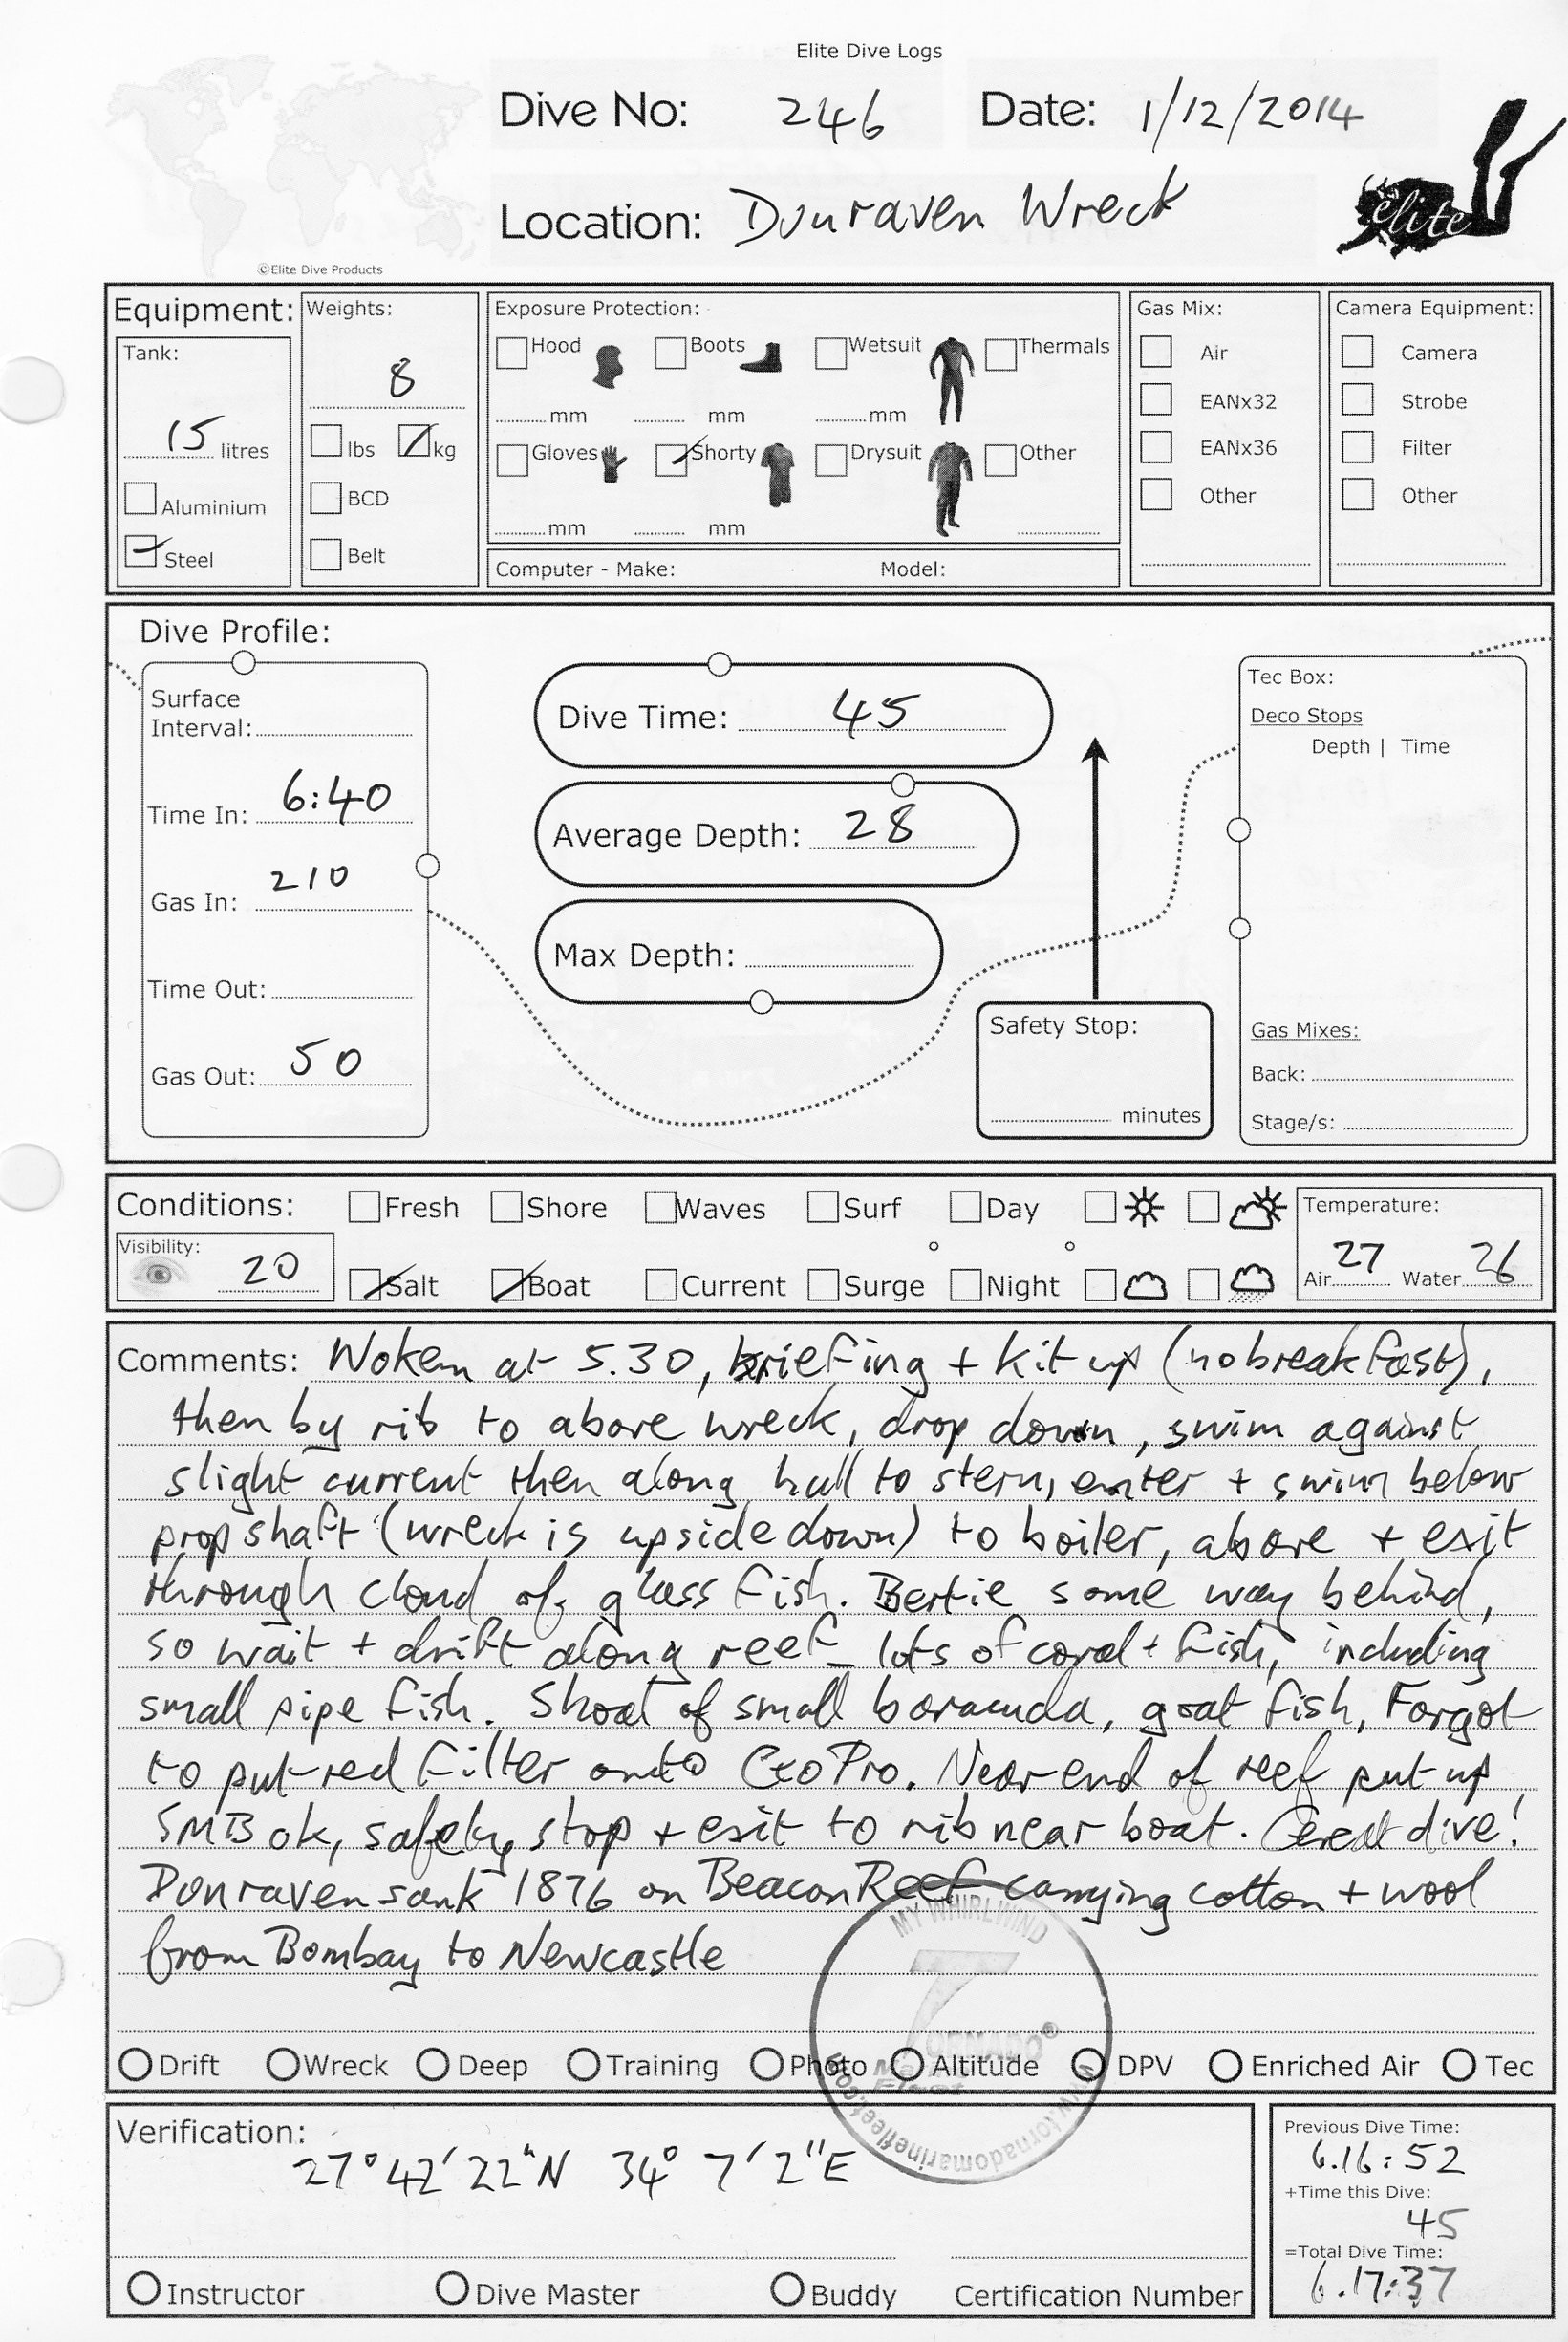 Elite Dive Logs
Dive No: 246 Date: 1/12/2014
Location: Dunraven Wreck
elite
©Elite Dive Products
Equipment: Weights: Exposure Protection: Gas Mix: Camera Equipment:
Tank: Hood Boots Wetsuit Thermals Air Camera
8 mm mm mm EANx32 Strobe
15 litres lbs kg Gloves Shorty Drysuit Other EANx36 Filter
Aluminium BCD Other Other
Steel Belt mm mm
Computer - Make: Model:
Dive Profile:
Surface
Interval:
Time In: 6:40
Gas In: 210
Time Out:
Gas Out: 50
Dive Time: 45
Average Depth: 28
Max Depth:
Safety Stop:
minutes
Tec Box:
Deco Stops
Depth | Time
Gas Mixes:
Back:
Stage/s:
Conditions: Fresh Shore Waves Surf Day Temperature:
Visibility: 20 Salt Boat Current Surge Night Air 27 Water 26
Comments: Woken at 5.30, briefing + kit up (no breakfast),
then by rib to above wreck, drop down, swim against
slight current then along hull to stern, enter + swim below
prop shaft (wreck is upside down) to boiler, above + exit
through cloud of glass fish. Bertie some way behind,
so wait + drift along reef - lots of coral + fish, including
small pipe fish. Shoal of small baracuda, goat fish, Forgot
to put red filter onto GoPro. Near end of reef put up
SMB ok, safety stop + exit to rib near boat. Great dive!
Dunraven sank 1876 on Beacon Reef carrying cotton + wool
from Bombay to Newcastle
MY WHIRLWIND
TORNADO®
Marine
Fleet
www.tornadomarinefleet.com
Drift Wreck Deep Training Photo Altitude DPV Enriched Air Tec
Verification:
27°42'22"N 34° 7'2"E
Instructor Dive Master Buddy Certification Number
Previous Dive Time:
6.16:52
+Time this Dive:
45
=Total Dive Time:
6.17:37